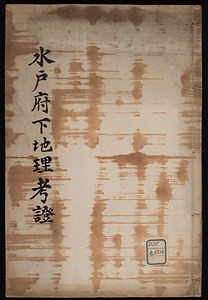 水戸府下地理考證